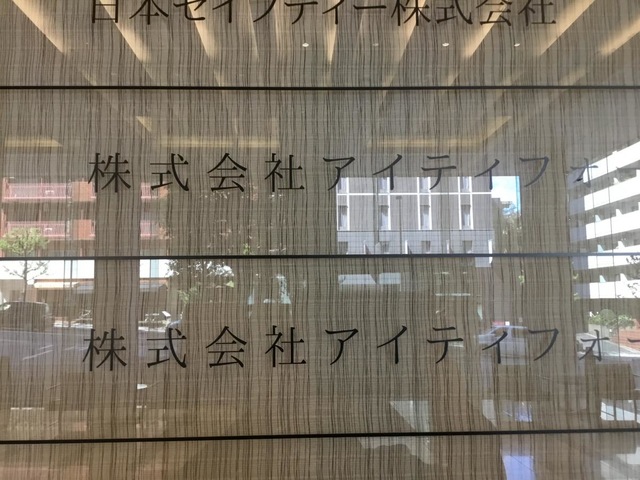 日本セイフティー株式会社
株式会社アイティフォ
株式会社アイティフォー